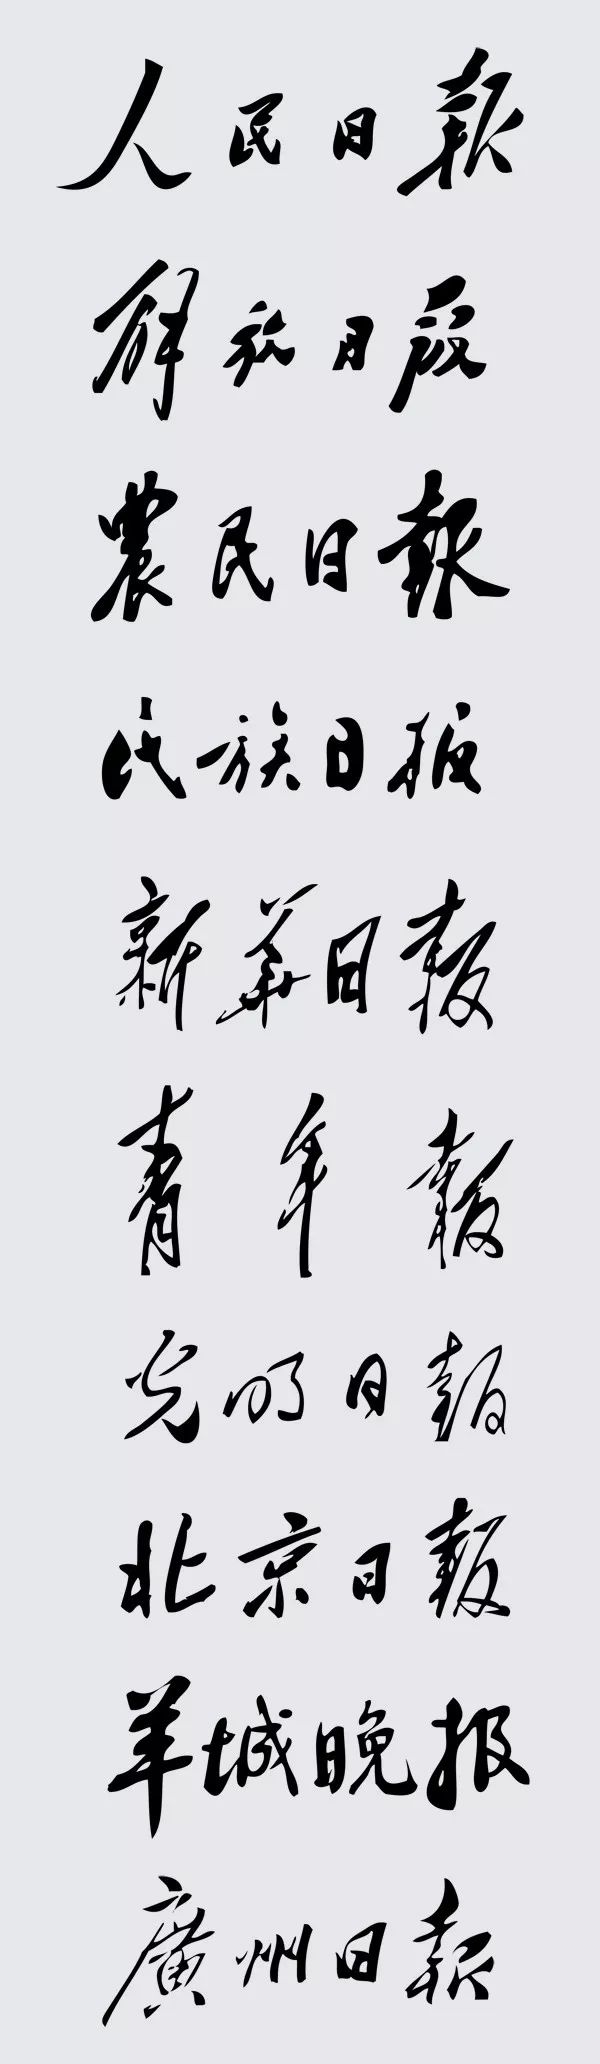 人民日報
解放日报
農民日報
民族日报
新華日报
青年報
光明日報
北京日報
羊城晚报
廣州日報